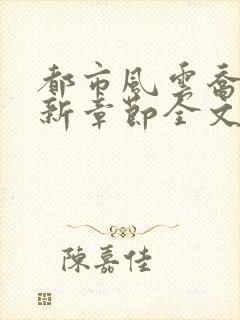 都市風雲喬
新章節全文
陳嘉佳